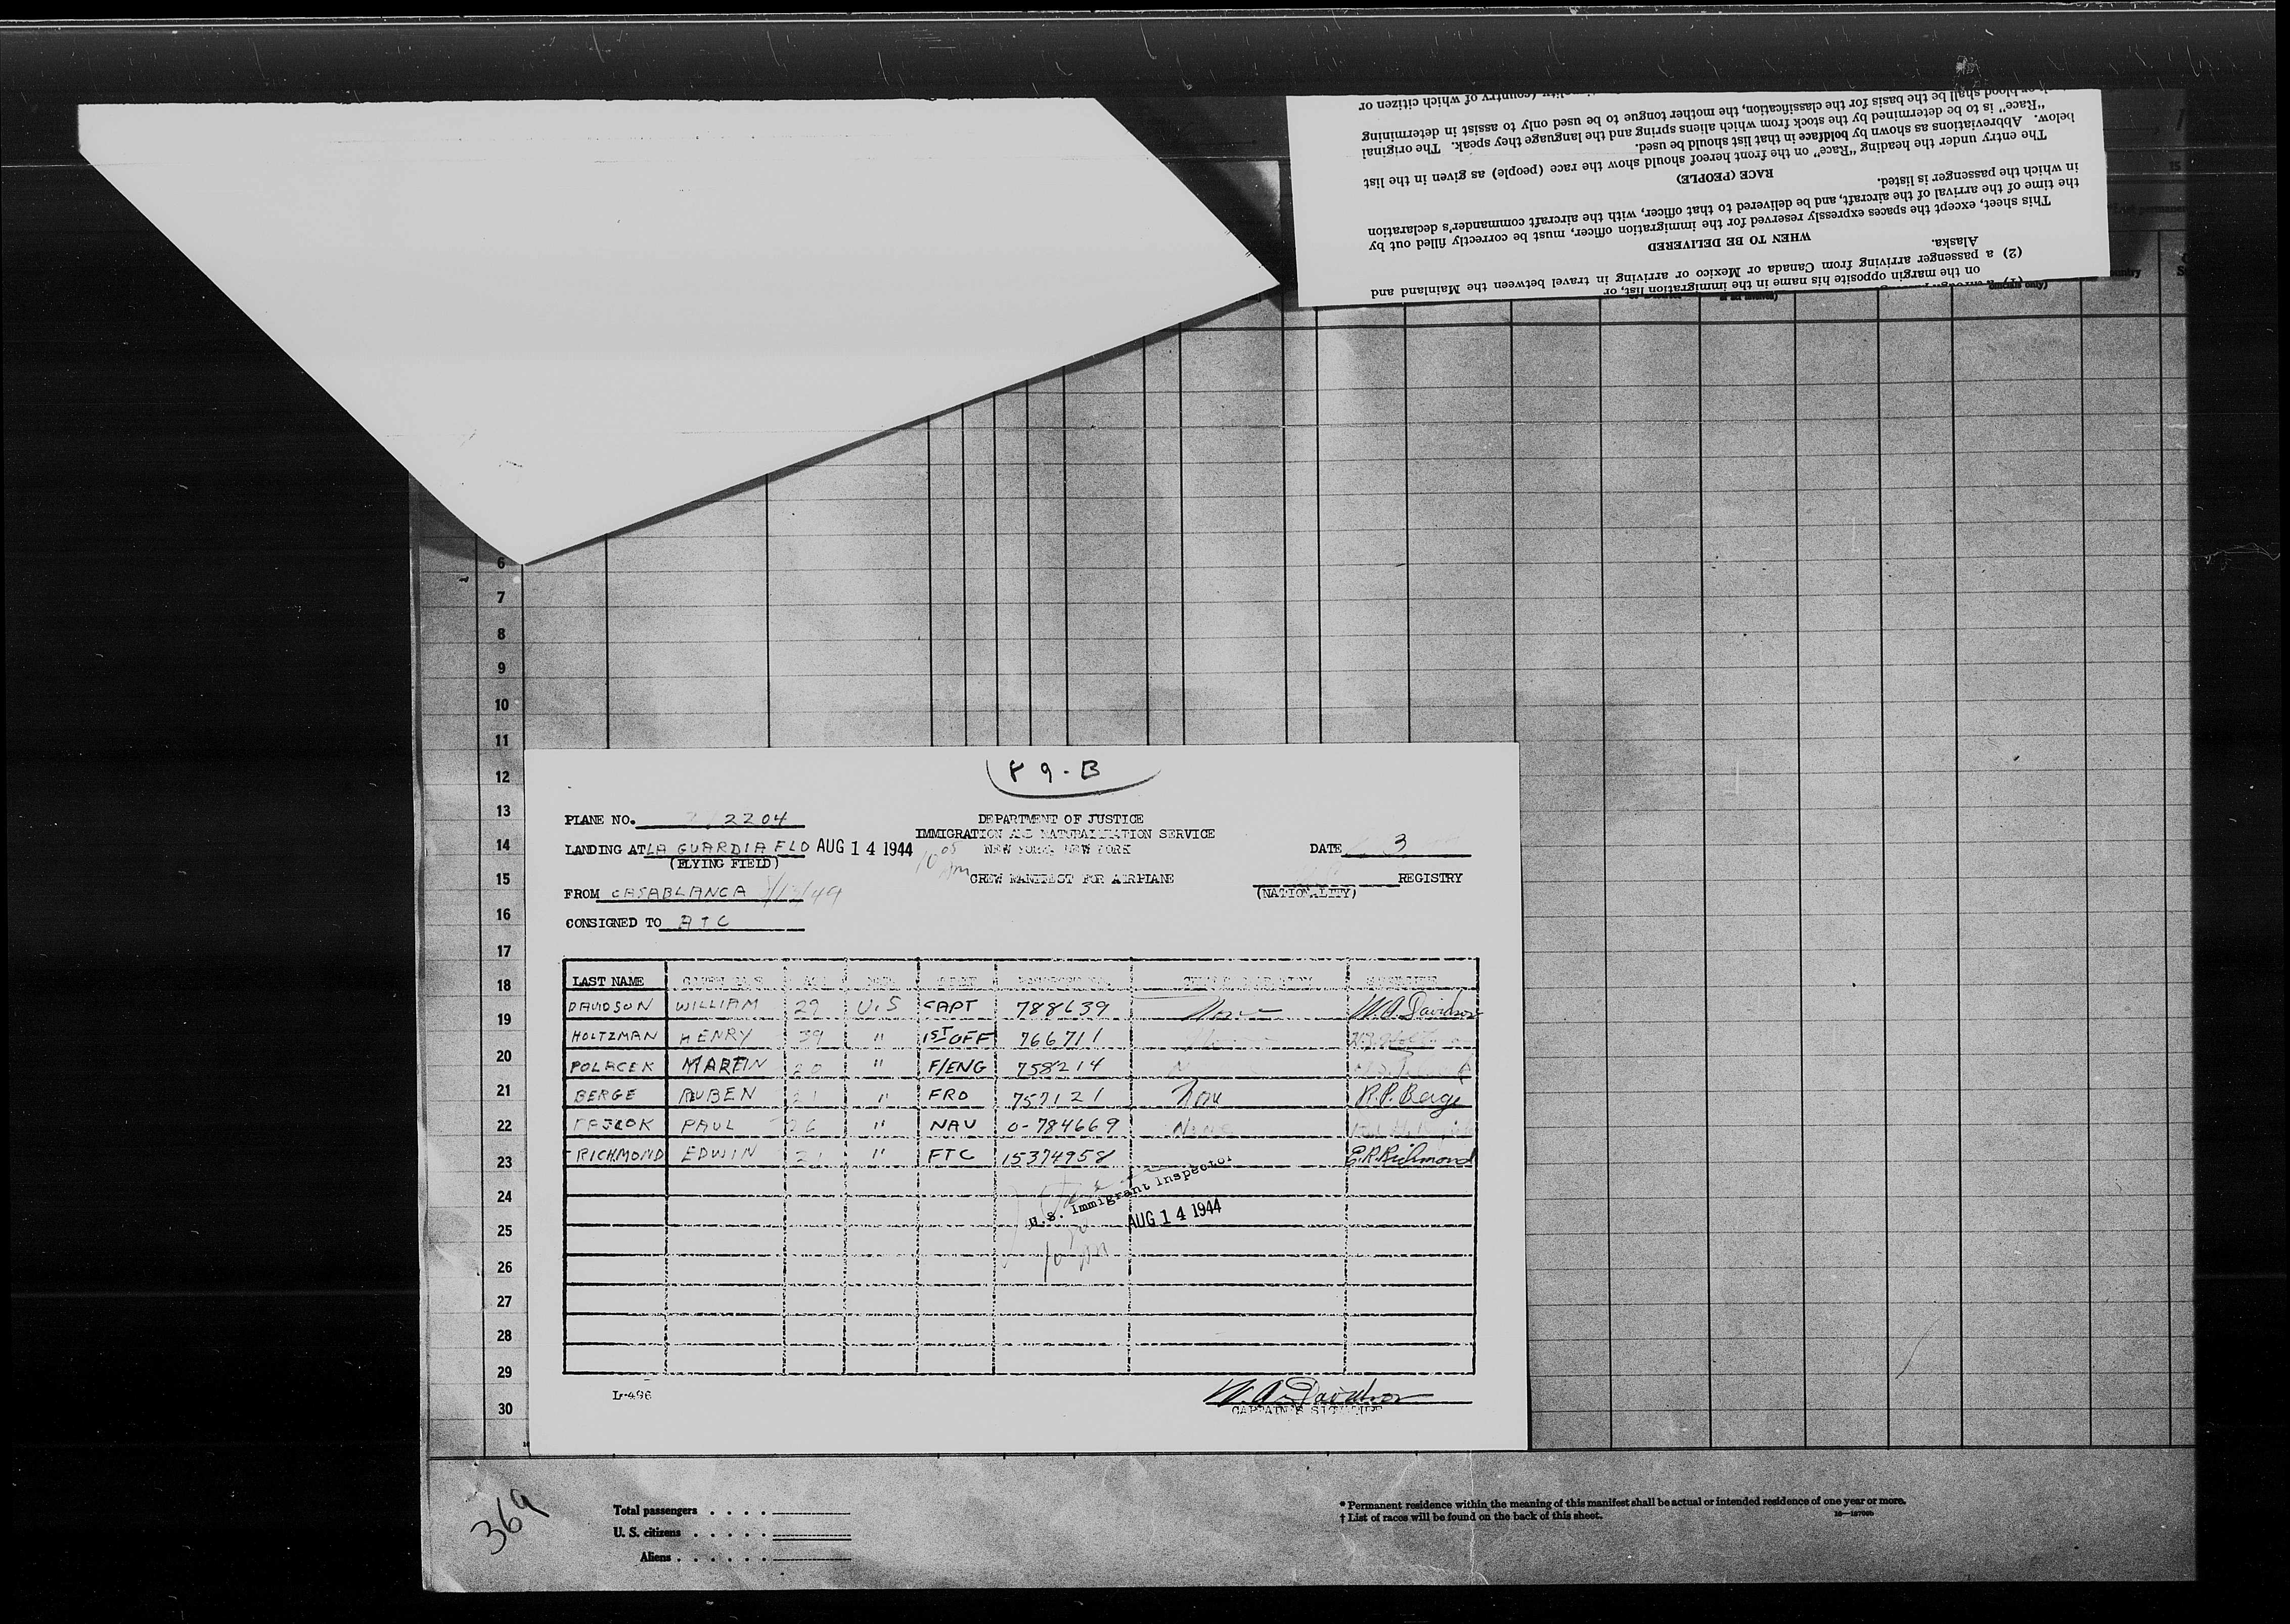 is or blood shall be the basis for the classification, the mother tongue to be used only to assist in determining
"Race" is to be determined by the stock from which aliens spring and the language they speak. The original
below. Abbreviations as shown by boldface in that list should be used.
The entry under the heading "Race" on the front hereof should show the race (people) as given in the list
RACE (PEOPLE)
in which the passenger is listed.
the time of the arrival of the aircraft, and be delivered to that officer, with the aircraft commander's declaration
This sheet, except the spaces expressly reserved for the immigration officer, must be correctly filled out by
WHEN TO BE DELIVERED
Alaska.
(2) a passenger arriving from Canada or Mexico or arriving in travel between the Mainland and
on the margin opposite his name in the immigration list, or
15
6
7
8
9
10
11
12
13
14
15
16
17
18
19
20
21
22
23
24
25
26
27
28
29
30
89-B
PLANE NO. 2204
DEPARTMENT OF JUSTICE
IMMIGRATION AND NATURALIZATION SERVICE
NEW YORK, NEW YORK
LANDING AT LA GUARDIA FLD AUG 14 1944
(FLYING FIELD)
DATE 3
CREW MANIFEST FOR AIRPLANE
REGISTRY
(NATIONALITY)
FROM CASABLANCA
CONSIGNED TO ATC
LAST NAME
DAVIDSON WILLIAM 29 U.S CAPT 788639 None W.A. Davidson
HOLTZMAN HENRY 39 " 1ST OFF 766711
POLACEK MARTIN 20 " F/ENG 758214
BERGE RUBEN 21 " FRO 757121 None R.P. Berge
PAUL 26 " NAV O-784669 None
RICHMOND EDWIN 21 " FTC 15374958 E.R. Richmond
U.S. Immigrant Inspector
AUG 14 1944
L-496
W. A. Davidson
CAPTAIN'S SIGNATURE
369
Total passengers
U. S. citizens
Aliens
* Permanent residence within the meaning of this manifest shall be actual or intended residence of one year or more.
† List of races will be found on the back of this sheet.